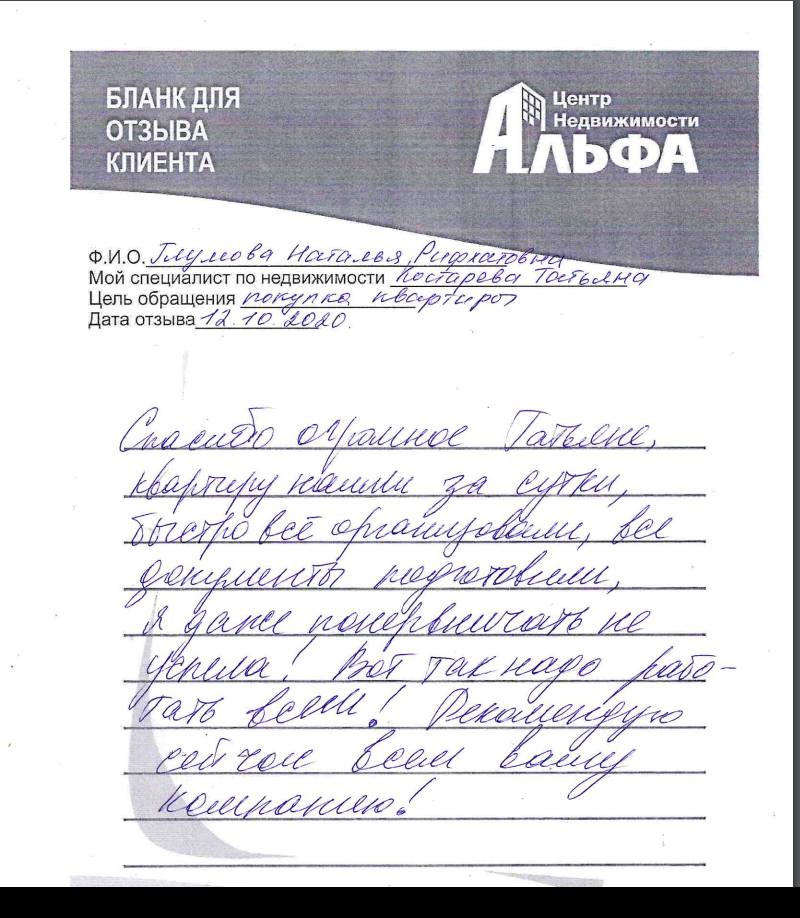 БЛАНК ДЛЯ
ОТЗЫВА
КЛИЕНТА
Центр
Недвижимости
АЛЬФА
Ф.И.О. Глумова Наталья Рифхатовна
Мой специалист по недвижимости Костарева Татьяна
Цель обращения покупка квартиры
Дата отзыва 12.10.2020
Спасибо огромное Татьяне,
квартиру нашли за сутки,
быстро всё организовали, все
документы подготовили,
я даже понервничать не
успела! Вот так надо рабо-
тать всем! Рекомендую
сейчас всем вашу
компанию!